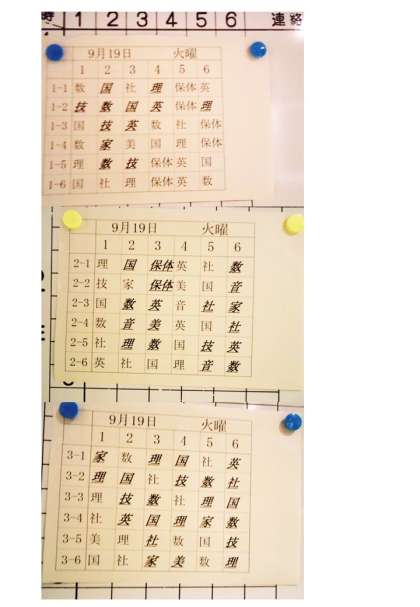 時 1 2 3 4 5 6 連絡
9月19日 火曜
1 2 3 4 5 6
1-1 数 国 社 理 保体 英
1-2 技 数 国 英 保体 理
1-3 国 技 英 数 社 保体
1-4 数 家 美 国 理 保体
1-5 理 数 技 保体 英 国
1-6 国 社 理 保体 英 数
9月19日 火曜
1 2 3 4 5 6
2-1 理 国 保体 英 社 数
2-2 技 家 保体 美 国 音
2-3 国 数 英 音 社 家
2-4 数 音 美 英 国 社
2-5 社 理 数 国 技 英
2-6 英 社 国 理 音 数
9月19日 火曜
1 2 3 4 5 6
3-1 家 数 理 国 社 英
3-2 理 国 社 技 数 社
3-3 理 技 数 社 理 国
3-4 社 英 国 理 家 数
3-5 美 理 社 数 国 技
3-6 国 社 家 美 数 理